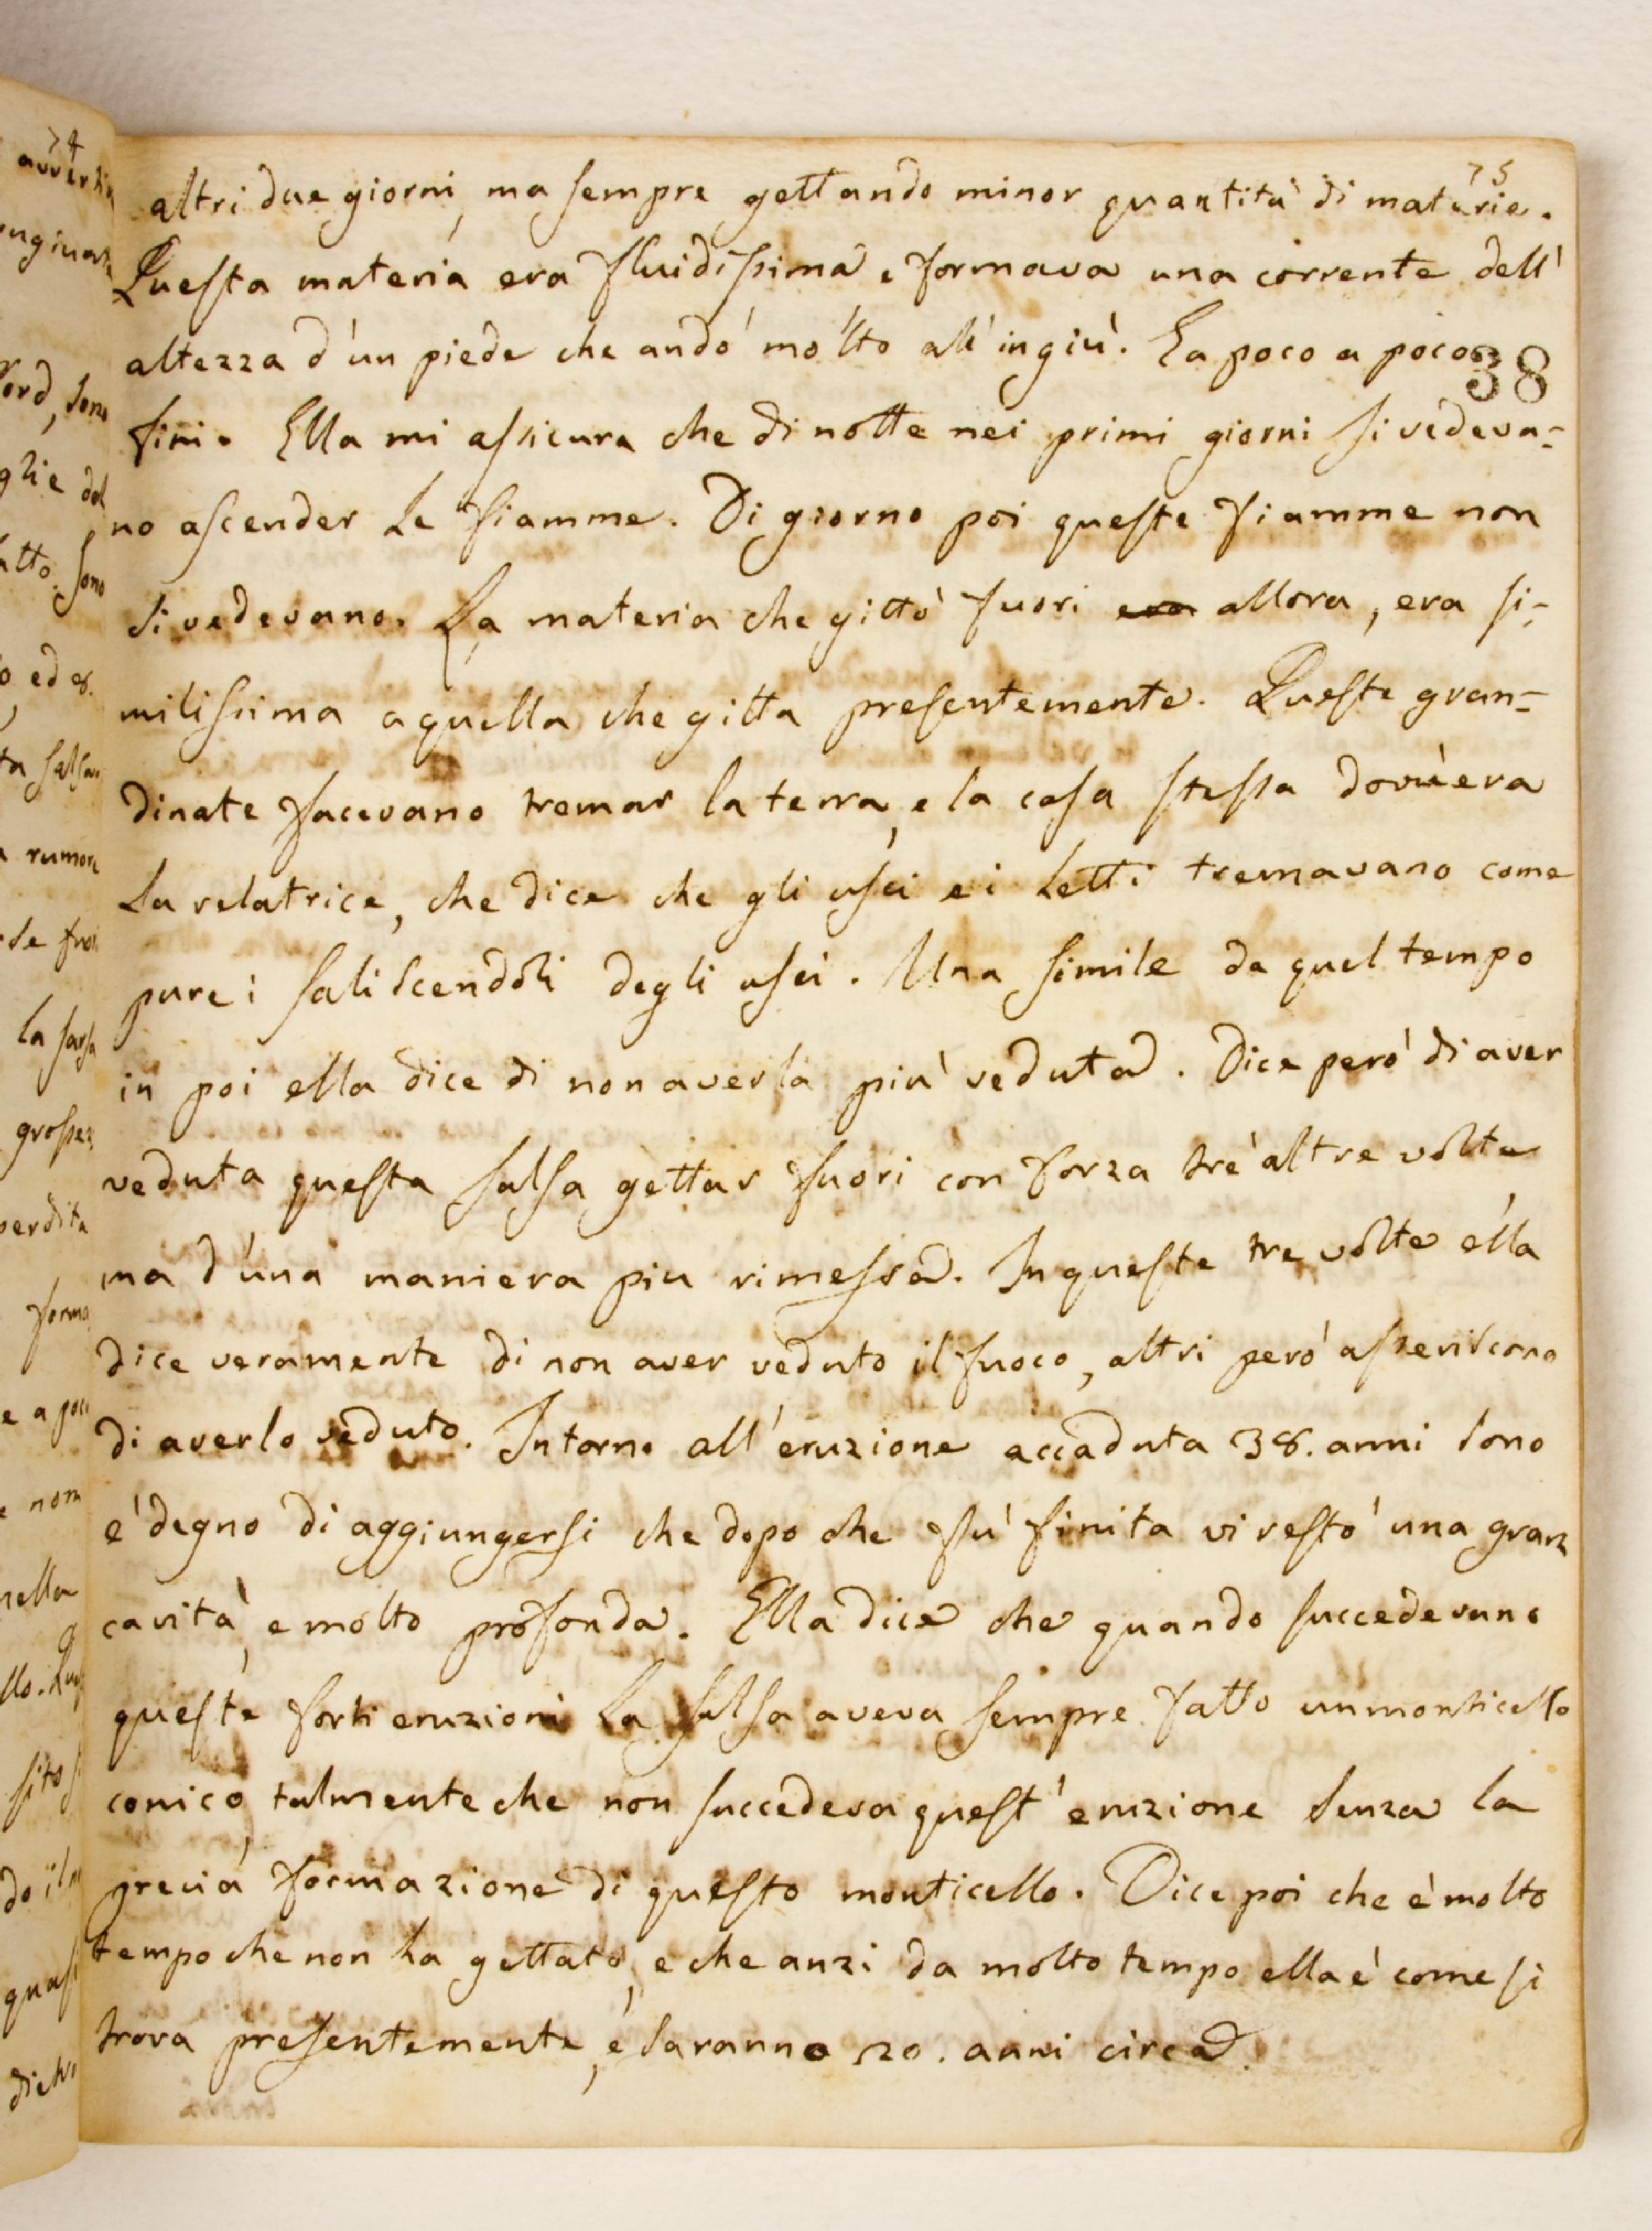 75
altri due giorni, ma sempre gettando minor quantità di materie.
Questa materia era fluidissima, e formava una corrente dell'
altezza d'un piede che andò molto all'ingiù. E a poco a poco
38
finì. Ella mi assicura che di notte nei primi giorni si vedeva=
no ascender le fiamme. Di giorno poi queste fiamme non
si vedevano. La materia che gittò fuori era allora, era si=
milissima a quella che gitta presentemente. Queste gran=
dinate facevano tremar la terra, e la casa stessa dov'era
la relatrice, che dice che gli usci e i letti tremavano come
pure i saliscendoli degli usci. Una simile da quel tempo
in poi ella dice di non averla più veduta. Dice però di aver
veduta questa salsa gettar fuori con forza trè altre volte
ma d'una maniera piu rimessa. In queste tre volte ella
dice veramente di non aver veduto il fuoco, altri però asseriscono
di averlo veduto. Intorno all'eruzione accaduta 38. anni sono
è degno di aggiungersi che dopo che fù finita vi restò una gran
cavità, e molto profonda. Ella dice che quando succedevano
queste forti eruzioni la salsa aveva sempre fatto un monticello
conico, talmente che non succedeva quest'eruzione senza la
previa formazione di questo monticello. Dice poi che è molto
tempo che non ha gettato, e che anzi da molto tempo ella è come si
trova presentemente, e saranno 20. anni circa.